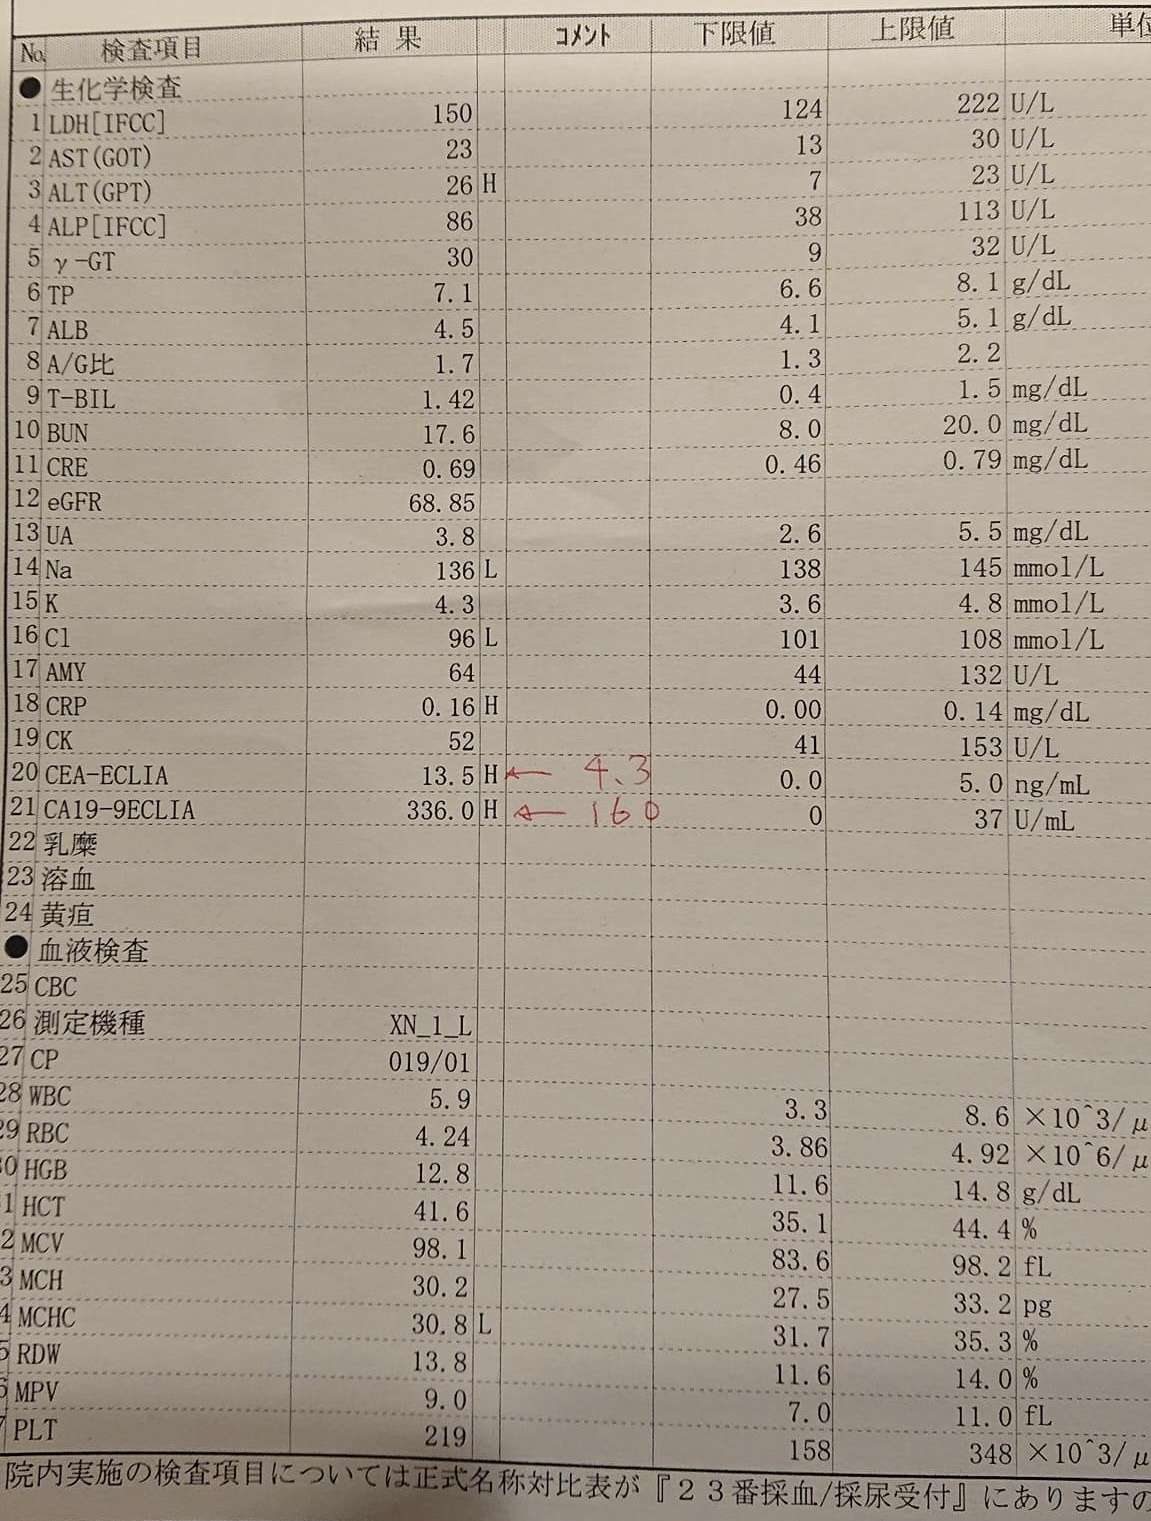 No. 検査項目 結果 コメント 下限値 上限値
● 生化学検査
1 LDH[IFCC] 150 124 222 U/L
2 AST(GOT) 23 13 30 U/L
3 ALT(GPT) 26 H 7 23 U/L
4 ALP[IFCC] 86 38 113 U/L
5 γ-GT 30 9 32 U/L
6 TP 7.1 6.6 8.1 g/dL
7 ALB 4.5 4.1 5.1 g/dL
8 A/G比 1.7 1.3 2.2
9 T-BIL 1.42 0.4 1.5 mg/dL
10 BUN 17.6 8.0 20.0 mg/dL
11 CRE 0.69 0.46 0.79 mg/dL
12 eGFR 68.85
13 UA 3.8 2.6 5.5 mg/dL
14 Na 136 L 138 145 mmol/L
15 K 4.3 3.6 4.8 mmol/L
16 Cl 96 L 101 108 mmol/L
17 AMY 64 44 132 U/L
18 CRP 0.16 H 0.00 0.14 mg/dL
19 CK 52 41 153 U/L
20 CEA-ECLIA 13.5 H ← 4.3 0.0 5.0 ng/mL
21 CA19-9ECLIA 336.0 H ← 160 0 37 U/mL
22 乳糜
23 溶血
24 黄疸
● 血液検査
25 CBC
26 測定機種 XN_1_L
27 CP 019/01
28 WBC 5.9 3.3 8.6 ×10^3/μ
29 RBC 4.24 3.86 4.92 ×10^6/μ
0 HGB 12.8 11.6 14.8 g/dL
1 HCT 41.6 35.1 44.4 %
2 MCV 98.1 83.6 98.2 fL
3 MCH 30.2 27.5 33.2 pg
4 MCHC 30.8 L 31.7 35.3 %
5 RDW 13.8 11.6 14.0 %
6 MPV 9.0 7.0 11.0 fL
7 PLT 219 158 348 ×10^3/μ
院内実施の検査項目については正式名称対比表が『23番採血/採尿受付』にありますの